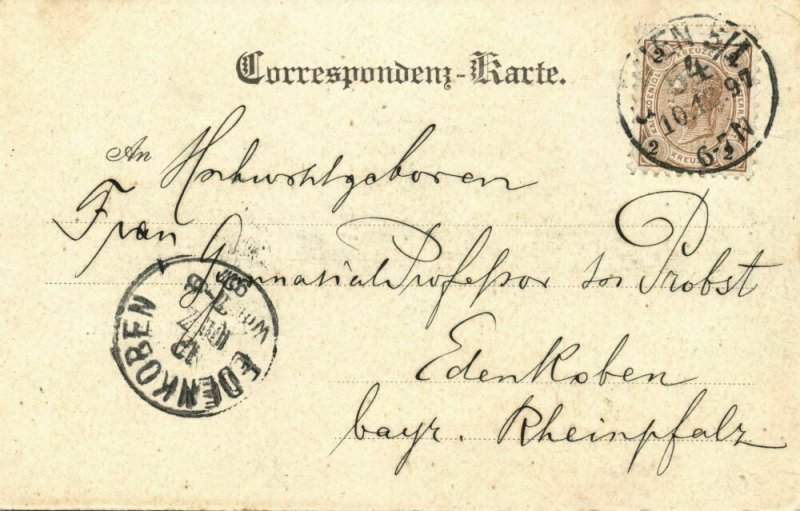 Correspondenz-Karte.
An Hochwohlgeboren
Frau GymnasialProfessor Probst
Edenkoben
bayr. Rheinpfalz
EDENKOBEN
KREUZER
10.12.97